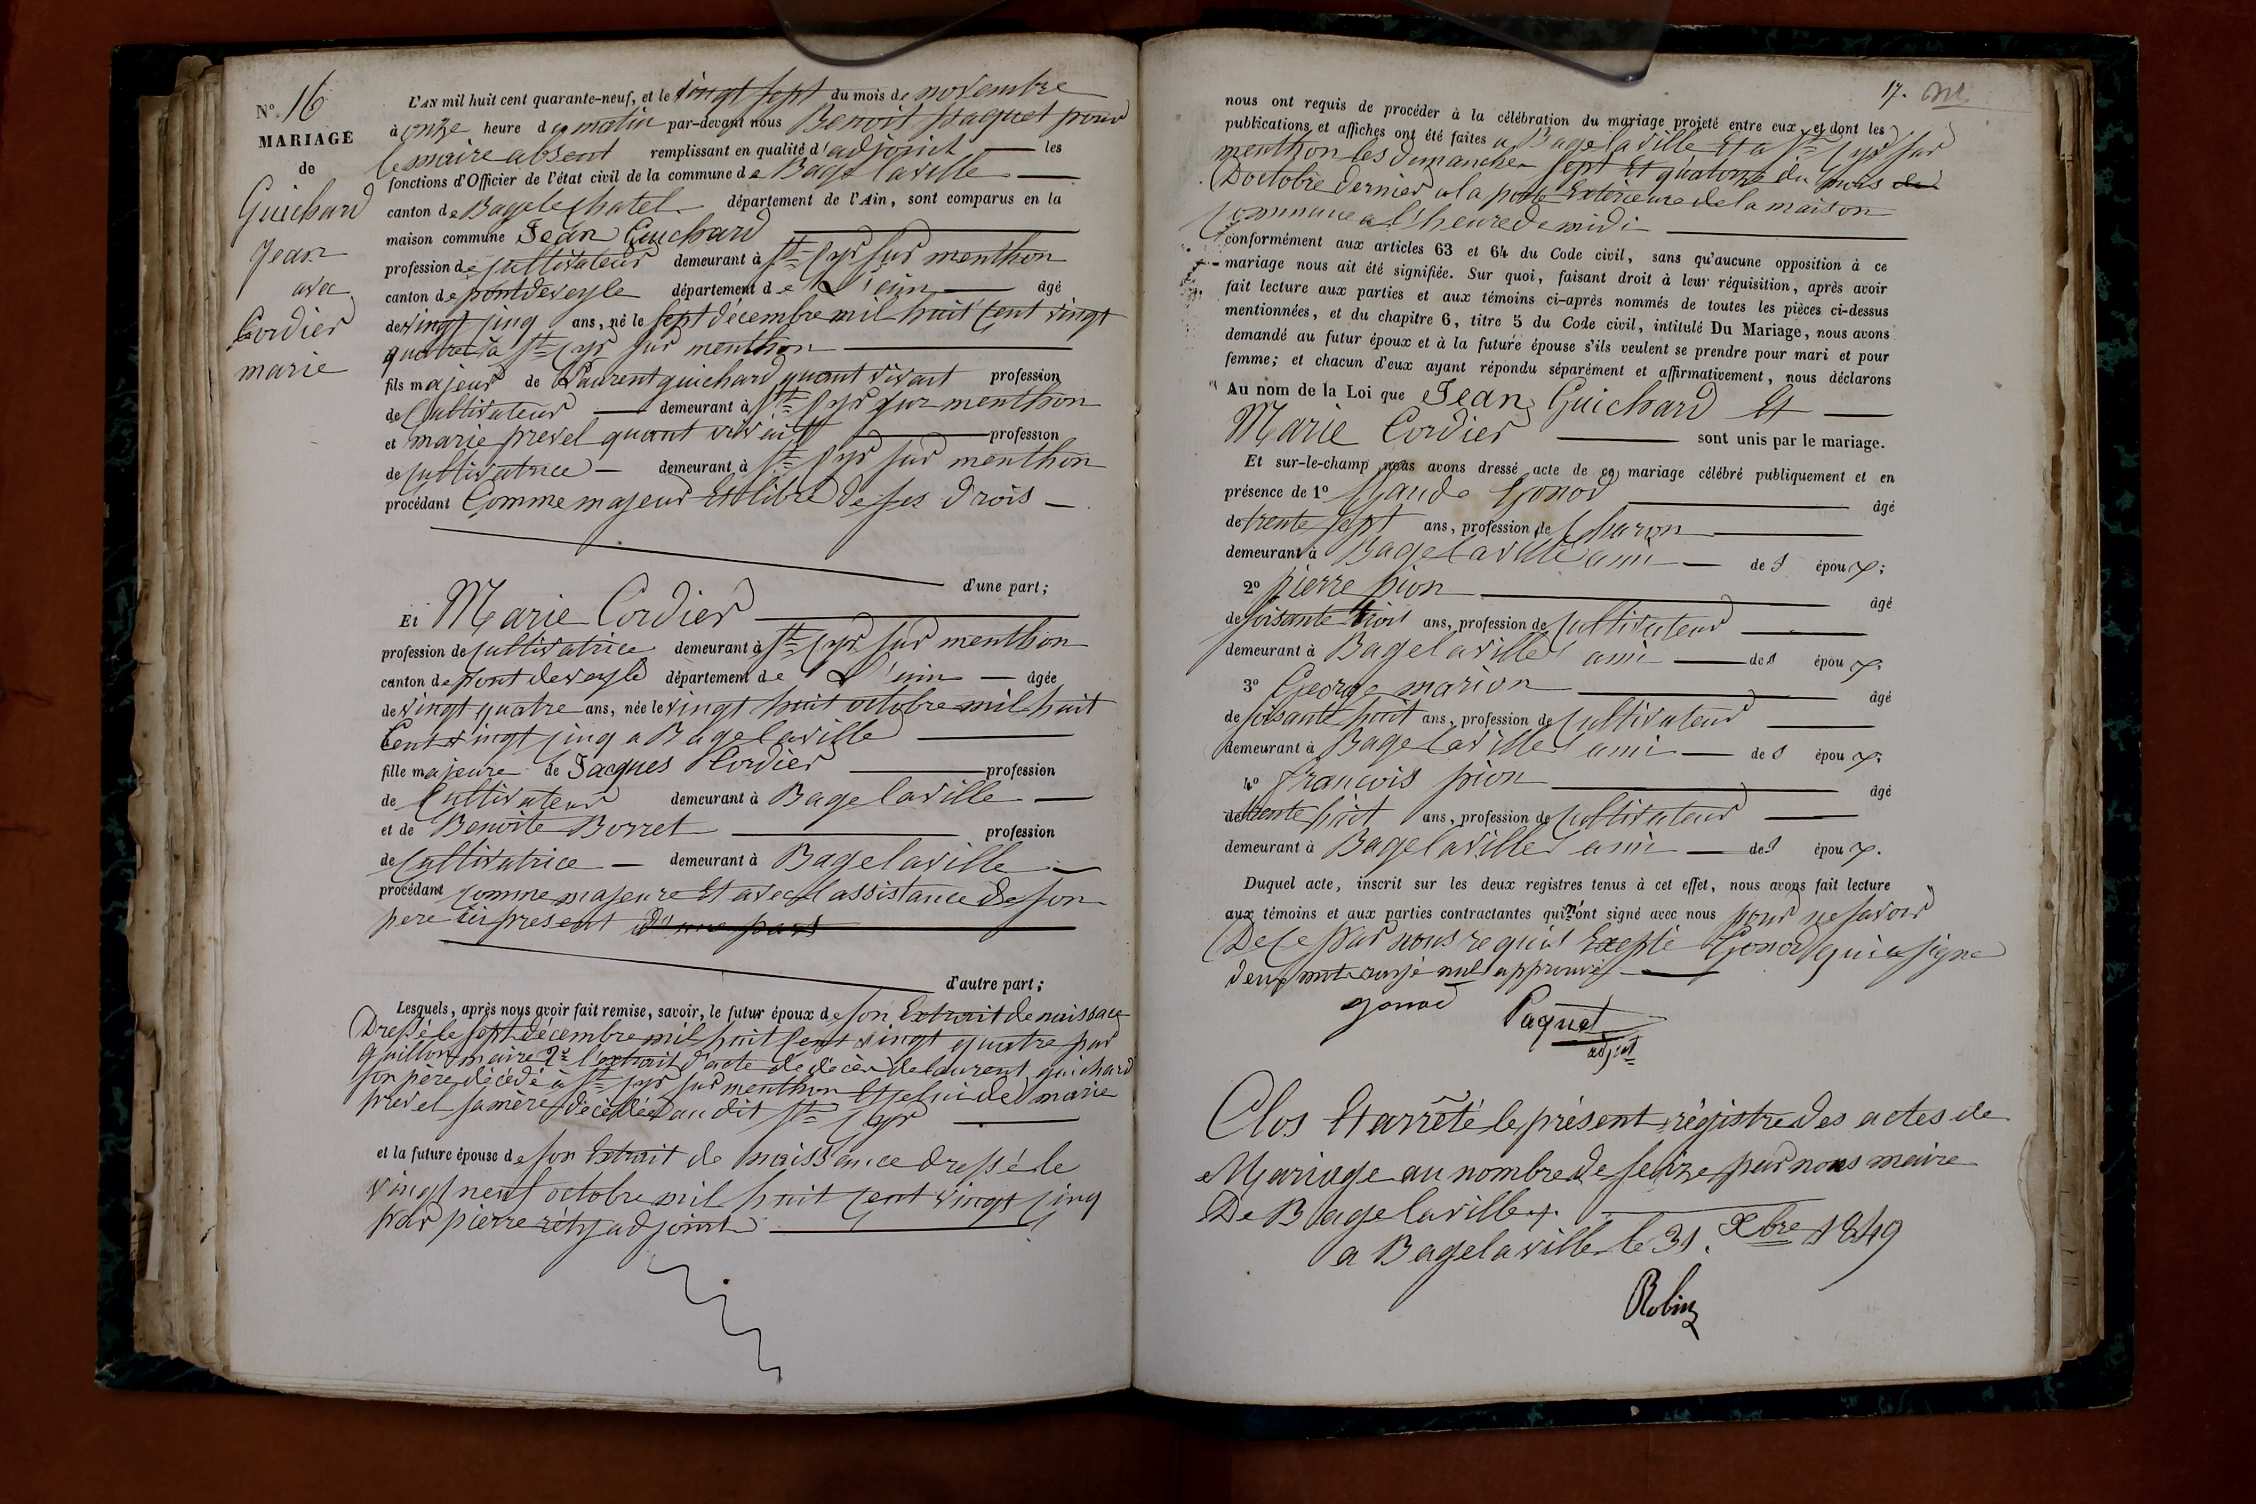 N.° 16
MARIAGE
de
Guichard
Jean
avec
Cordier
marie
L'AN mil huit cent quarante-neuf, et le vingt sept du mois de novembre
à onze heure du matin par-devant nous Benoit paquet pour
le maire absent remplissant en qualité d'adjoint les
fonctions d'Officier de l'état civil de la commune de Bagé laville
canton de Bagé le chatel département de l'Ain, sont comparus en la
maison commune Jean Guichard
profession de Cultivateur demeurant à St Cyr sur menthon
canton de pontdeveyle département de L'ain âgé
de vingt cinq ans, né le sept décembre mil huit Cent vingt
quatre à St Cyr sur menthon
fils majeur de Laurent guichard quant vivait profession
de Cultivateur demeurant à St Cyr sur menthon
et marie prevel quant vivait profession
de Cultivatrice demeurant à St Cyr sur menthon
procédant Comme majeur Et libre de ses drois
d'une part;
Et Marie Cordier
profession de Cultivatrice demeurant à St Cyr sur menthon
canton de pont de veyle département de L'ain âgée
de vingt quatre ans, née le vingt huit octobre mil huit
Cent vingt cinq a Bage laville
fille majeure de Jacques Cordier profession
de Cultivateur demeurant à Bage laville
et de Benoite Borret profession
de Cultivatrice demeurant à Bage laville
procédant comme majeure Et avec l'assistance de son
pere ici present d'une part
d'autre part;
Lesquels, après nous avoir fait remise, savoir, le futur époux de son Extrait de naissace
Dressé le sept décembre mil huit Cent vingt quatre par
guillon maire 2° l'extrait d'acte de décès de laurent guichard
son père décédé à St Cyr sur menthon Et celui de marie
prevel sa mère décédée au dit St Cyr
et la future épouse de son Extrait de naissance dressé le
vingt neuf octobre mil huit Cent vingt cinq
par pierre réty adjoint
17.
nous ont requis de procéder à la célébration du mariage projeté entre eux et dont les
publications et affiches ont été faites a Bage la ville Et a St Cyr sur
menthon les dimanche sept Et quatorze du mois de
Doctobre dernier a la porte Exterieure de la maison
Commune a l'heure de midi
conformément aux articles 63 et 64 du Code civil, sans qu'aucune opposition à ce
mariage nous ait été signifiée. Sur quoi, faisant droit à leur réquisition, après avoir
fait lecture aux parties et aux témoins ci-après nommés de toutes les pièces ci-dessus
mentionnées, et du chapitre 6, titre 5 du Code civil, intitulé Du Mariage, nous avons
demandé au futur époux et à la future épouse s'ils veulent se prendre pour mari et pour
femme; et chacun d'eux ayant répondu séparément et affirmativement, nous déclarons
Au nom de la Loi que Jean Guichard Et
Marie Cordier sont unis par le mariage.
Et sur-le-champ nous avons dressé acte de ce mariage célébré publiquement et en
présence de 1° Claude Gonod âgé
de trente sept ans, profession de Charon
demeurant à Bage laville ami de s époux;
2° pierre pion âgé
de soisante trois ans, profession de Cultivateur
demeurant à Bage laville ami de s époux;
3° George marion âgé
de soisante huit ans, profession de Cultivateur
demeurant à Bage laville ami de s époux;
4° françois pion âgé
de trente huit ans, profession de Cultivateur
demeurant à Bage laville ami de s époux.
Duquel acte, inscrit sur les deux registres tenus à cet effet, nous avons fait lecture
aux témoins et aux parties contractantes qui n'ont signé avec nous pour ne savoir
De ce par nous requis Excepté Gonod qui a signé
deux mots rayé nul approuvé
gonod
Paquet
adjoint
Clos Et arrêté le présent régistre des actes de
Mariage au nombre de seize par nous maire
De Bage laville.
a Bage la ville le 31. Xbre 1849
Robin